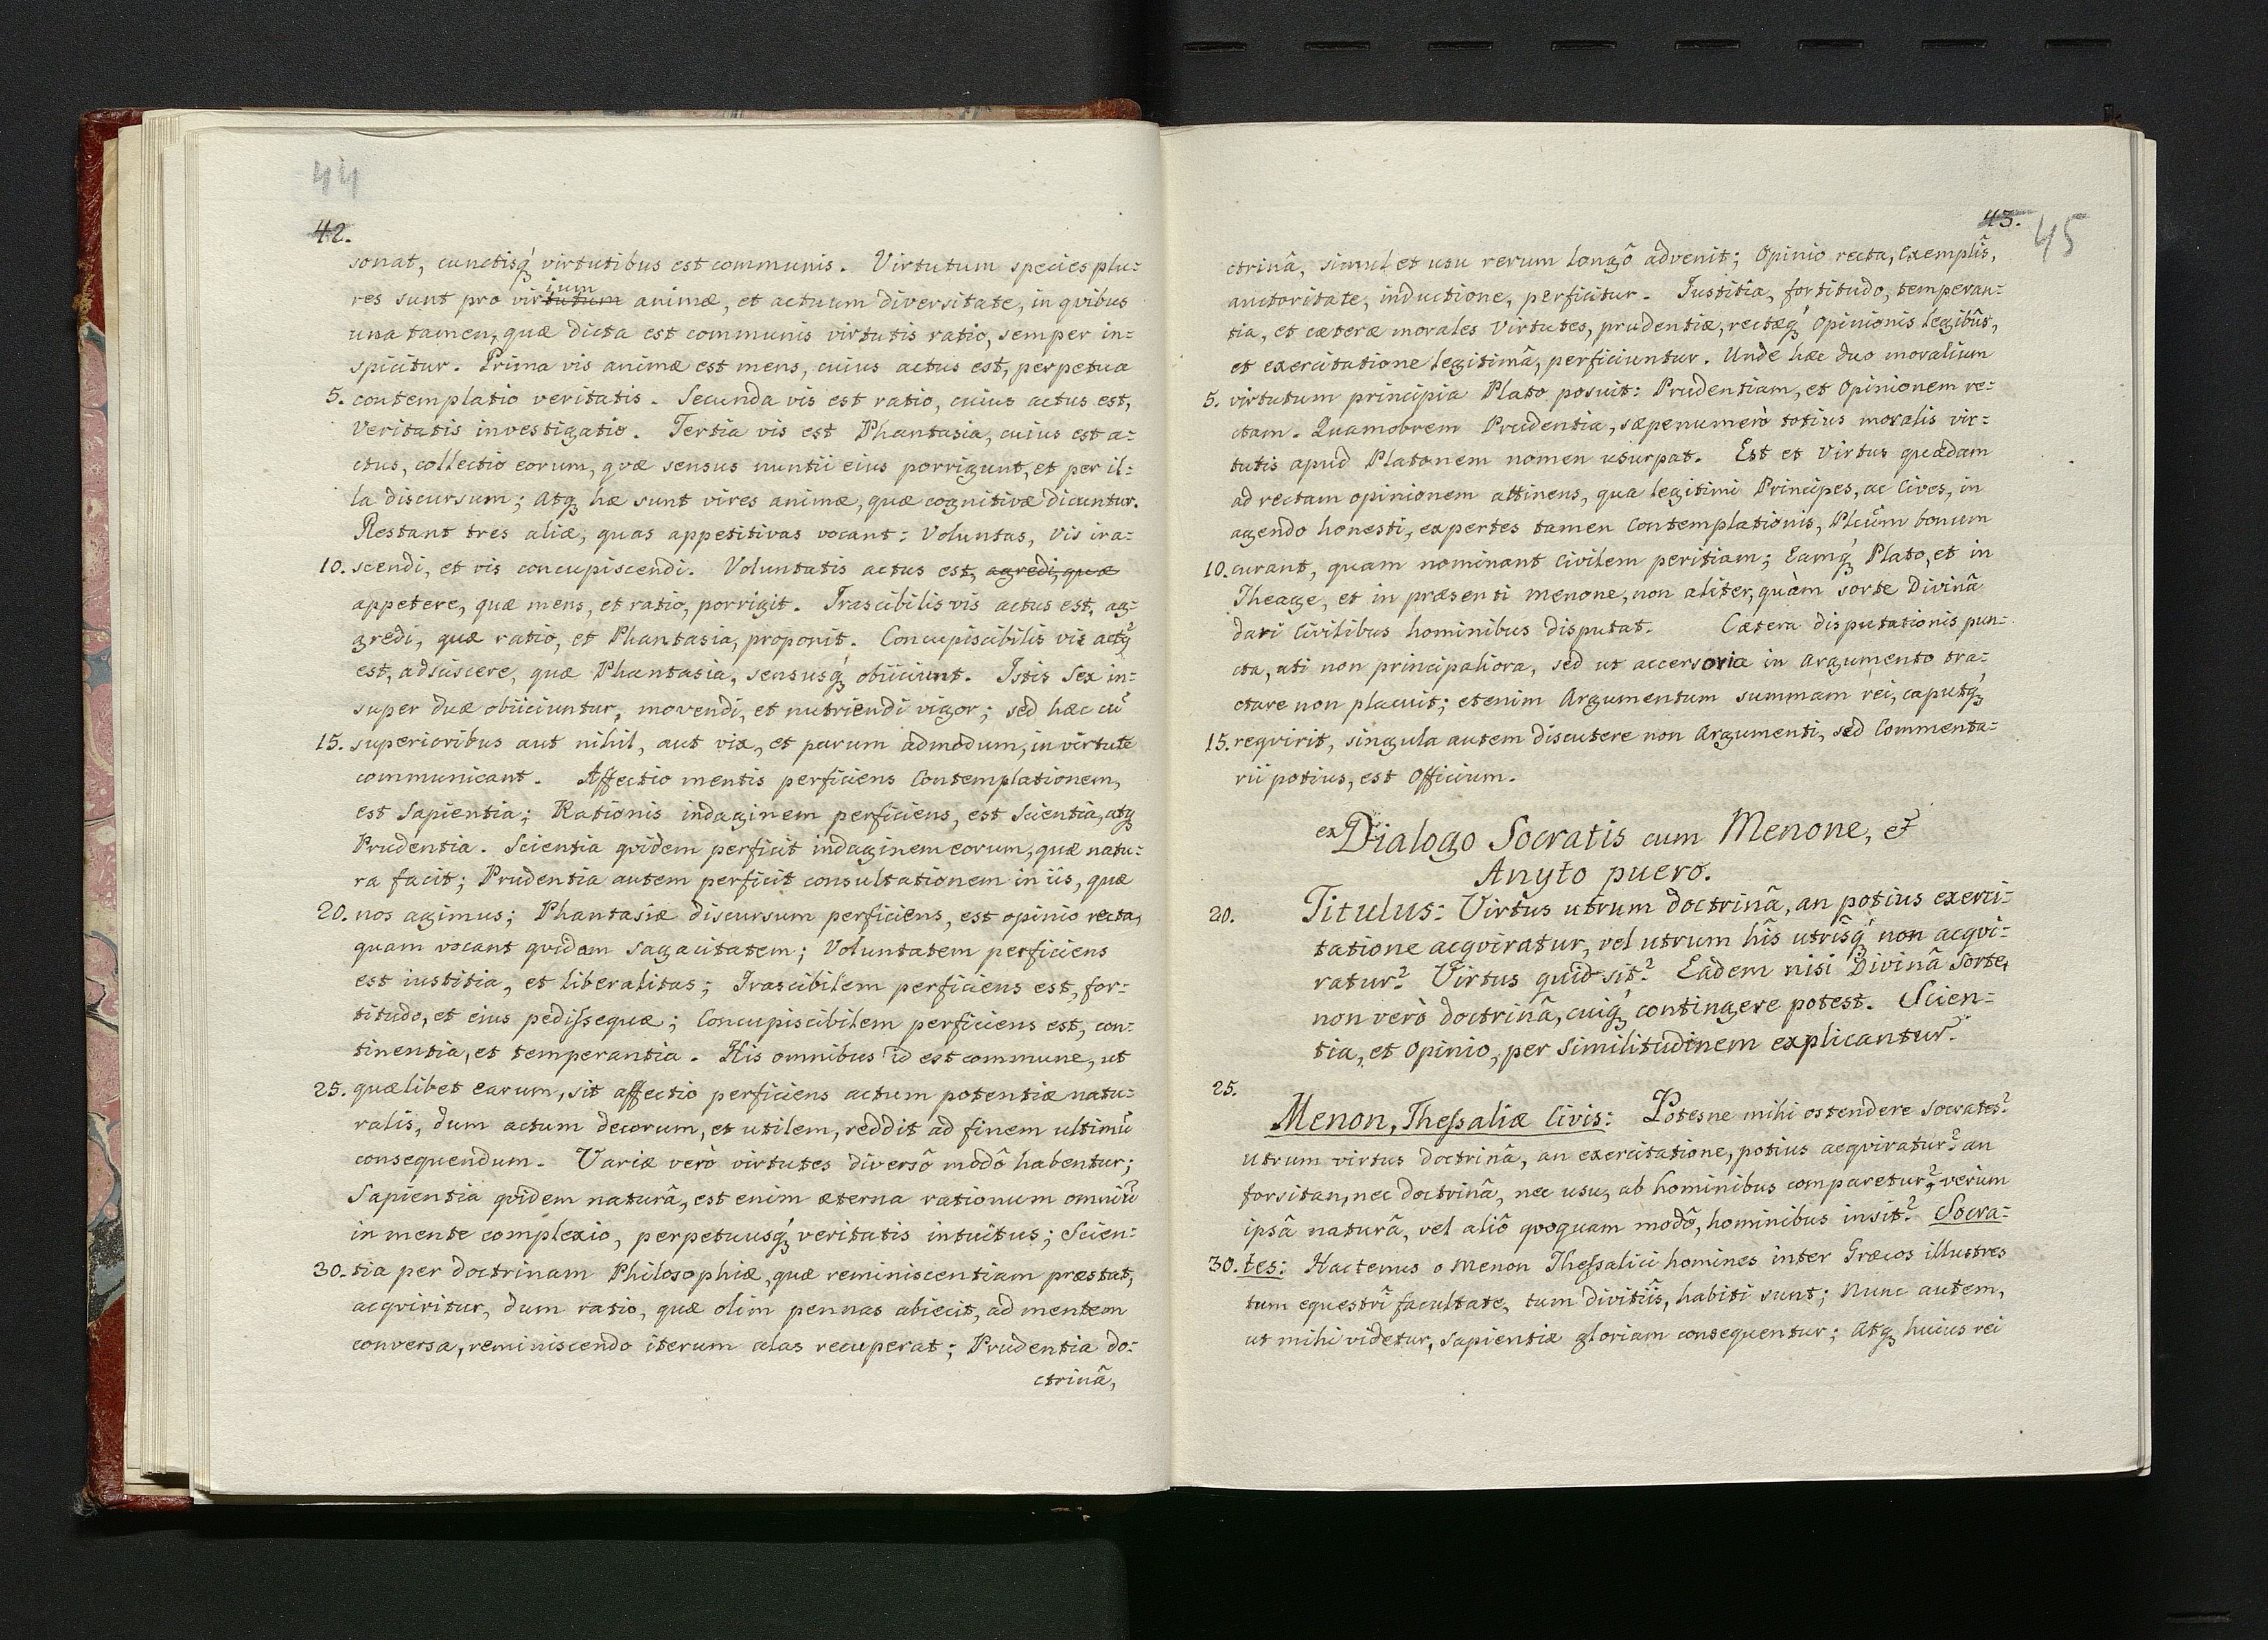 44
42.
sonat, cunctisq́ virtutibus est communis. Virtutum species plu:
ium
res sunt pro virtutum animæ, et actuum diversitate, in qvibus
una tamen, quæ dicta est communis virtutis ratio, semper in:
spicitur. Prima vis animæ est mens, cuius actus est, perpetua
5. contemplatio veritatis. Secunda vis est ratio, cuius actus est,
Veritatis investigatio. Tertia vis est Phantasia, cuius est a:
ctus, collectio eorum, qvæ sensus nuntii eius porrigunt, et per il:
la discursum; Atq hæ sunt vires animæ, quæ cognitivæ dicuntur.
Restant tres aliæ, quas appetitivas vocant: Voluntas, Vis ira:
10. scendi, et vis concupiscendi. Voluntatis actus est, agredi, quæ
appetere, quæ mens, et ratio, porrigit. Irascibilis vis actus est, ag:
gredi, quæ ratio, et Phantasia, proponit. Concupiscibilis vis actq
est, adsciscere, quæ Phantasia, sensusq́ obiiciunt. Istis Sex in:
super duæ obiiciuntur, movendi, et nutriendi vigor; sed hæc cū
15. superioribus aut nihil, aut vix, et parum admodum, in virtute
communicant. Affectio mentis perficiens Contemplationem,
est Sapientia; Rationis indaginem perficiens, est Scientia, atq
Prudentia. Scientia qvidem perficit indaginem eorum, quæ natu:
ra facit; Prudentia autem perficit consultationem in iis, quæ
20. nos agimus; Phantasiæ discursum perficiens, est opinio recta,
quam vocant qvidam sagacitatem; Voluntatem perficiens
est iustitia, et liberalitas; Irascibilem perficiens est, for:
titudo, et eius pedissequæ; Concupiscibilem perficiens est, con:
tinentia, et temperantia. His omnibus id est commune, ut
25. quælibet earum, sit affectio perficiens actum potentiæ natu:
ralis, dum actum decorum, et utilem, reddit ad finem ultimū
consequendum. Variæ verò virtutes diversô modô habentur;
Sapientia qvidem naturâ, est enim æterna rationum omniū
in mente complexio, perpetuusq́ veritatis intuitus; Scien:
30. tia per doctrinam Philosophiæ, quæ reminiscentiam præstat,
acqviritur, dum ratio, quæ olim pennas abiecit, ad mentem
conversa, reminiscendo iterum alas recuperat; Prudentia do:
ctrinâ,
43.
45
ctrinâ, simul et usu rerum longô advenit; Opinio recta, Exemplîs,
auctoritate, inductione, perficitur. Iustitia, fortitudo, temperan:
tia, et cæteræ morales Virtutes, prudentiæ, rectæq́ Opinionis legibûs,
et exercitatione legitimâ, perficiuntur. Unde hæc duo moralium
5. virtutum principia Plato posuit: Prudentiam, et Opinionem re:
ctam. Quamobrem Prudentia, sæpenumerò totius moralis vir:
tutis apud Platonem nomen usurpat. Est et Virtus quædam
ad rectam opinionem attinens, qua legitimi Principes, ac Cives, in
agendo honesti, expertes tamen Contemplationis, bonum
10. curant, quam nominant Civilem peritiam; Eamq́ Plato, et in
Theage, et in præsenti Menone, non aliter, quàm sorte Divinâ
dari Civilibus hominibus disputat. Cætera disputationis pun:
cta, uti non principaliora, sed ut accersoria in Argumento tra:
ctare non placuit; etenim Argumentum summam rei, caputq́
15. reqvirit, singula autem discutere non Argumenti, sed Commenta:
rii potius, est Officium.
ex Dialogo Socratis cum Menone, et
Anyto puero.
20. Titulus: Virtus utrum doctrinâ, an potius exerci:
tatione acqviratur, vel utrum hîs utrîsq́ non acqvi:
ratur? Virtus quid sit? Eadem nisi Divinâ Sorte,
non verò doctrinâ, cuiq́ contingere potest. Scien:
tia, et Opinio, per similitudinem explicantur.
25.
Menon, Thessaliæ Civis: Potesne mihi ostendere Socrates?
utrum virtus doctrinâ, an exercitatione, potius acqviratur? an
forsitan, nec doctrinâ, nec usu, ab hominibus comparetur? verùm
ipsâ naturâ, vel aliô qvoquam modô, hominibus insit? Socra:
30. tes: Hactenus o Menon Thessalici homines inter Græcos illustres
tum equestrî facultate, tum divitiîs, habiti sunt; Nunc autem,
ut mihi videtur, sapientiæ gloriam consequentur; Atq huius rei